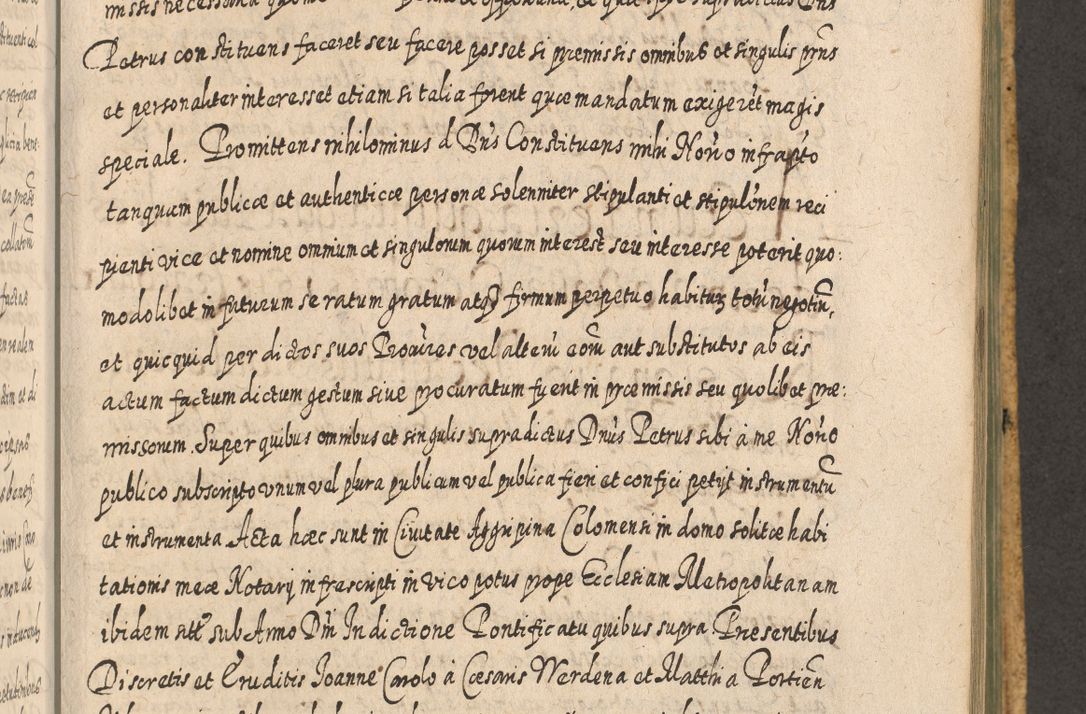 Petrus constituens faceret seu facere posset si premissis omnibus et singulis pñs
et personaliter interesset etiam si talia fuerent quæ mandatum exigerẽt magis
speciale. Promittens nihilominus d Dñs Constituens mihi Notrio infrapto
tanquam publicæ et authenticæ personæ solenniter stipulanti et stipulõnem reci
pienti vice et nomine omnium et singulorum quorum interest seu interesse poterit quo:
modolibet in futurum se ratum gratum atq firmum perpetuo habiturz totũ negotiũ,
et quicquid per dictos suos Procũres vel alterũ eorũ aut substitutos ab eis
actum factum dictum gestum siue procuratum fuerit in præmissis seu quolibet præ:
missorum. Super quibus omnibus et singulis supradictus Dnũs Petrus sibi à me Notrio
publico subscripto vnum vel plura publicum vel publica fieri et confici petijt instrumentũ
et instrumenta. Acta hæc sunt in Ciuitate Aggripina Coloniensi in domo solitæ habi
tationis meæ Notarij infrascripti in vico potus prope Ecclesiam Metropolitanam
ibidem sitt sub Anno Dñi Indictione Pontificatu quibus supra Presentibus
Discretis et Eruditis Joanne Carolo à Cæsaris Werdena et Matthia Portien